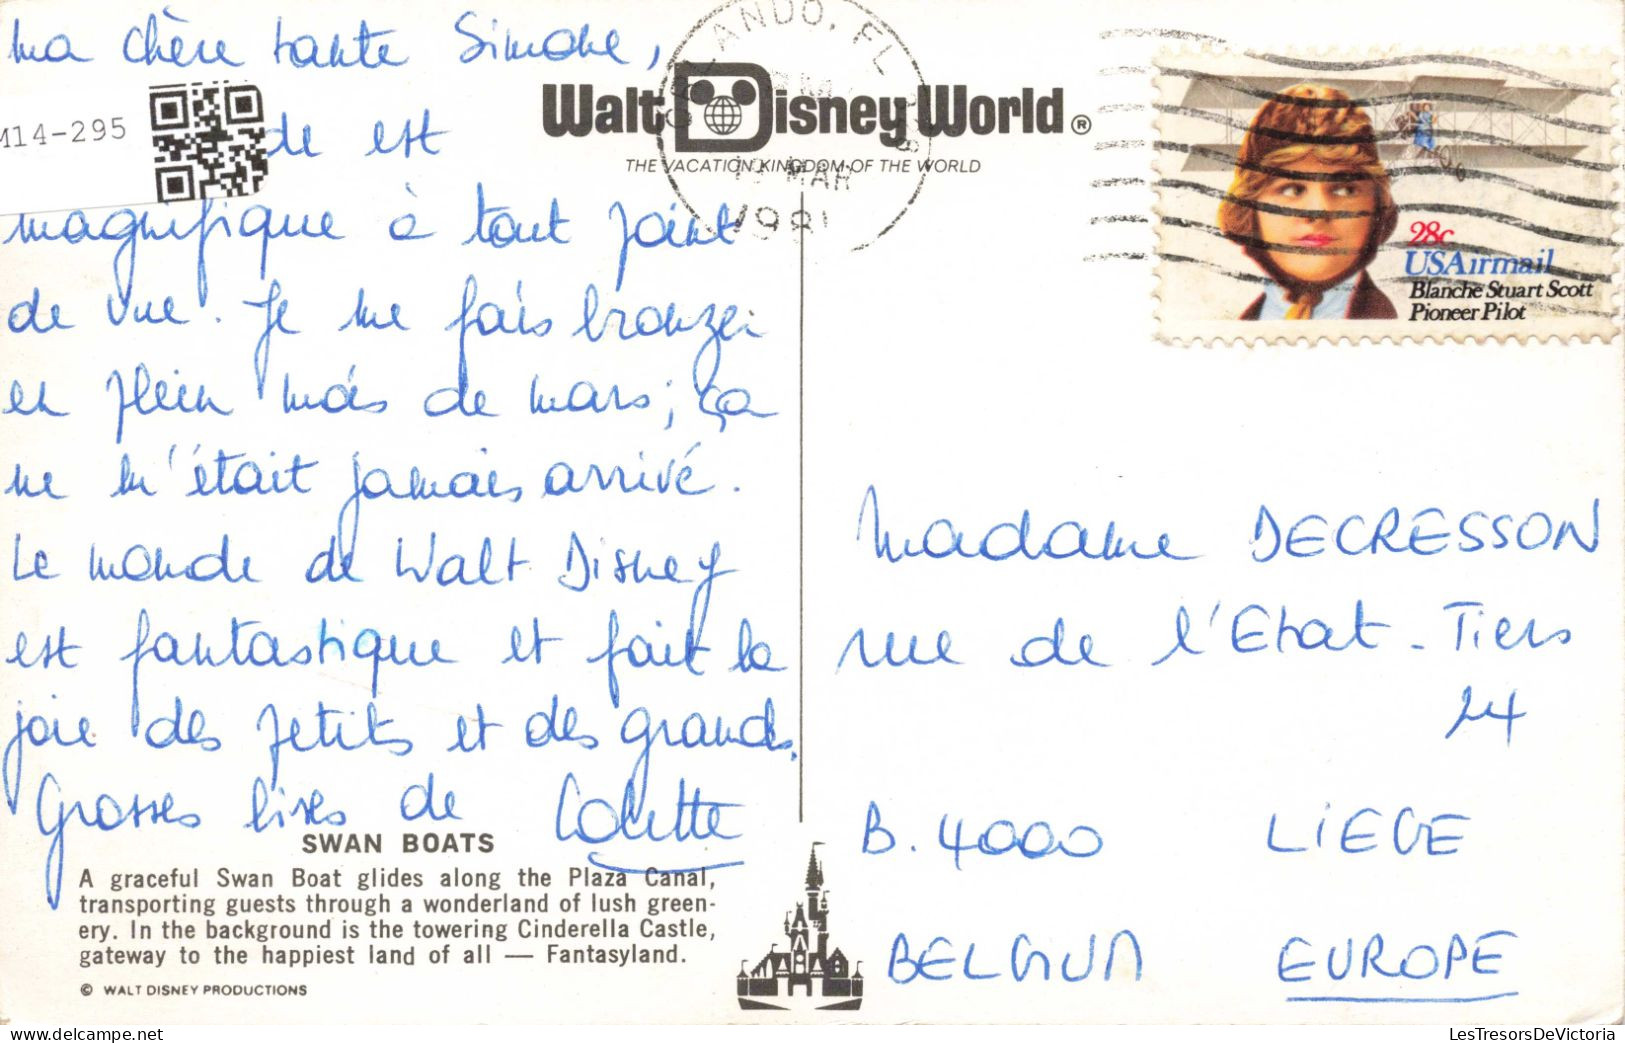 ma chère tante Simone,
M14-295
de est
magnifique à tout point
de vue. Je me fais bronzer
en plein mois de mars ; ça
ne m'était jamais arrivé.
Le monde de Walt Disney
est fantastique et fait la
joie des petits et des grands.
Grosses bises de Colette
Walt Disney World®
THE VACATION KINGDOM OF THE WORLD
ORLANDO, FL
MAR
1981
28c
USAirmail
Blanche Stuart Scott
Pioneer Pilot
Madame DECRESSON
rue de l'Etat-Tiers
24
B. 4000 LIEGE
BELGIUM EUROPE
SWAN BOATS
A graceful Swan Boat glides along the Plaza Canal,
transporting guests through a wonderland of lush green-
ery. In the background is the towering Cinderella Castle,
gateway to the happiest land of all — Fantasyland.
© WALT DISNEY PRODUCTIONS
LesTresorsDeVictoria